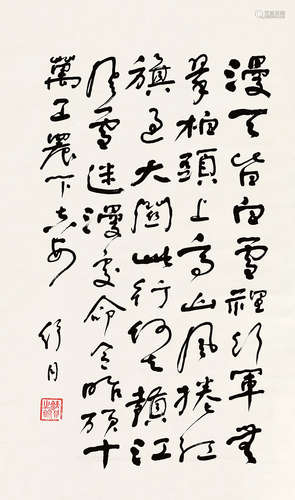 漫天皆白雪裡行軍無
翠柏頭上高山風捲紅
旗過大關此行何去贛江
風雪迷漫處命令昨頒十
萬工農下吉安